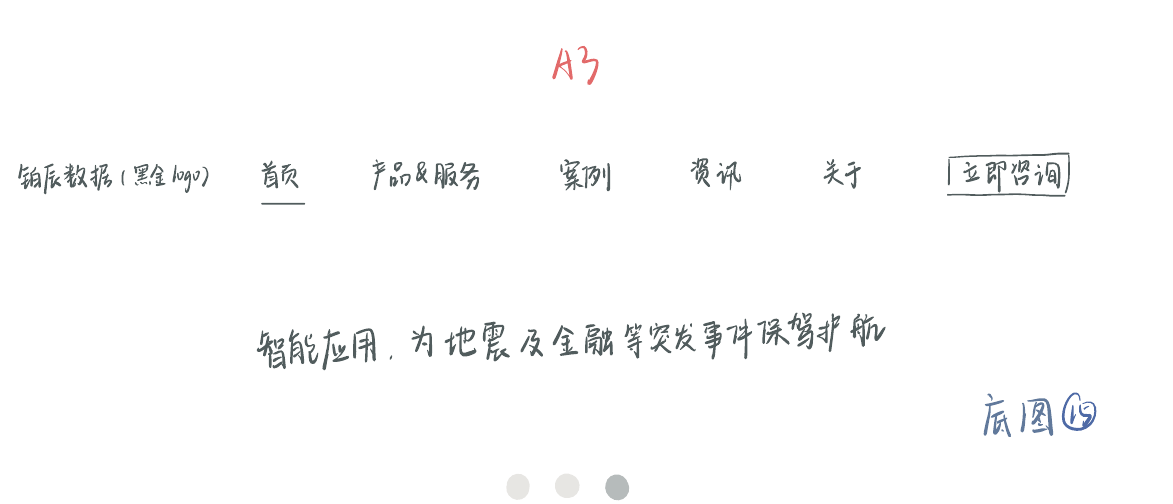 A3
铂辰数据(黑金logo) 首页 产品&服务 案例 资讯 关于 立即咨询
智能应用,为地震及金融等突发事件保驾护航
底图⑮